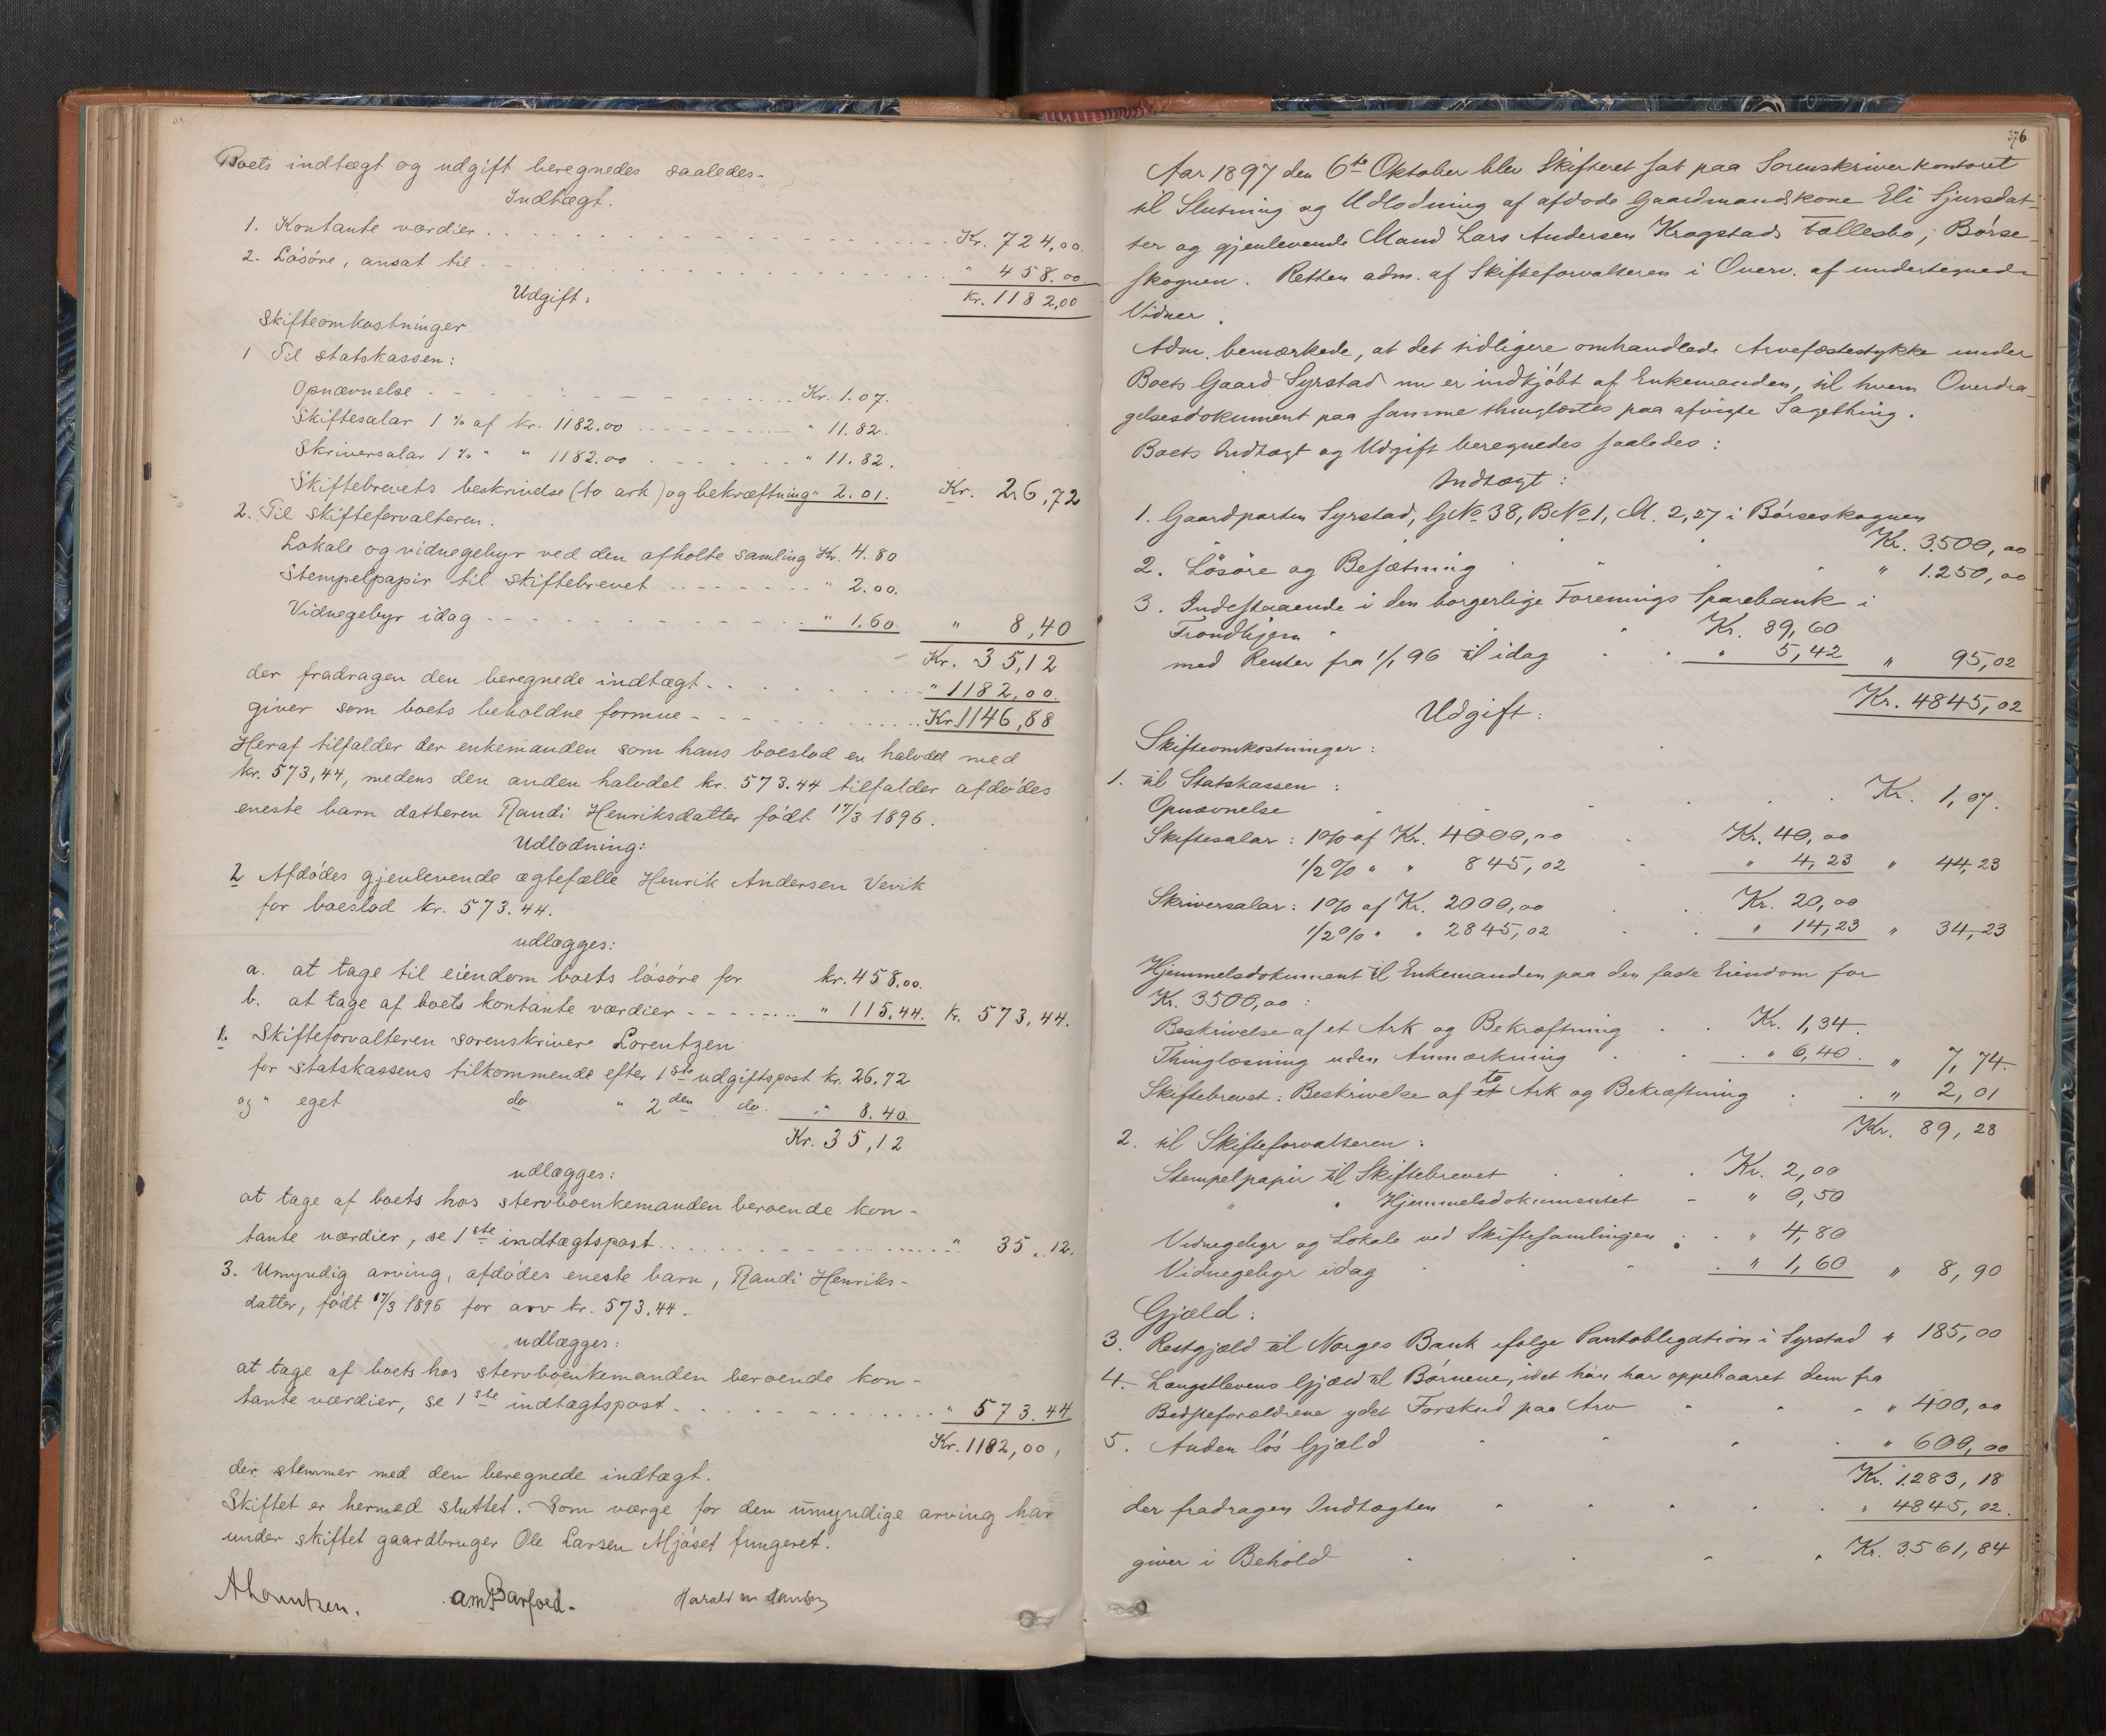 Boets indtægt og udgift beregnedes saaledes.
Indtægt.
1. Kontante værdier . . . Kr. 724,00
2. Løsøre, ansat til . . . " 458.00
Kr. 1182,00
Udgift:
Skifteomkostninger.
1 Til statskassen:
Opnævnelse . . . Kr. 1.07.
Skiftesalar 1 % af kr. 1182.00 . . . " 11.82.
Skriversalar 1 % " " 1182.00 . . . " 11.82.
Skiftebrevets beskrivelse (to ark) og bekræftning " 2.01. Kr. 26,72
2. Til skifteforvalteren.
Lokale og vidnegebyr ved den afholte samling Kr. 4.80
Stempelpapir til skiftebrevet . . . " 2.00.
Vidnegebyr idag . . . " 1.60 " 8,40
Kr. 35,12
der fradragen den beregnede indtægt . . . " 1182,00.
giver som boets beholdne formue . . . Kr. 1146,88
Heraf tilfalder der enkemanden som hans boeslod en halvdel med
kr. 573,44, medens den anden halvdel kr. 573.44 tilfalder afdødes
eneste barn datteren Randi Henriksdatter født 17/3 1896.
Udlodning:
2 Afdødes gjenlevende ægtefælle Henrik Andersen Vevik
for boeslod kr. 573.44.
udlægges:
a. at tage til eiendom boets løsøre for kr. 458.00.
b. at tage af boets kontante værdier . . . " 115.44. kr. 573,44.
1. Skifteforvalteren sorenskriver Lorentzen
for statskassens tilkommende efter 1ste udgiftspost kr. 26.72
og " eget do " 2den do. " 8.40.
Kr. 35,12
udlægges:
at tage af boets hos stervboenkemanden beroende kon-
tante værdier, se 1ste indtægtspost . . . " 35.12.
3. Umyndig arving, afdødes eneste barn, Randi Henriks-
datter, født 17/3 1896 for arv kr. 573.44.
udlægges:
at tage af boets hos stervboenkemanden beroende kon-
tante værdier, se 1ste indtægtspost . . . " 573.44
Kr. 1182,00,
der stemmer med den beregnede indtægt.
Skiftet er hermed sluttet. Som værge for den umyndige arving har
under skiftet gaardbruger Ole Larsen Mjøset fungeret.
ALorentzen. AMBarfoed. Harald
376
Aar 1897 den 6te Oktober blev Skifteret sat paa Sorenskriverkontoret
til Slutning og Udlodning af afdøde Gaardmandskone Eli Sjursdat-
ter og gjenlevende Mand Lars Andersen Krogstads Fællesbo, Børse-
skognen. Retten adm. af Skifteforvalteren i Overv. af undertegnede
Vidner.
Adm. bemærkede, at det tidligere omhandlede Arvefæstestykke under
Boets Gaard Syrstad nu er indkjøbt af Enkemanden, til hvem Overdra-
gelsesdokument paa samme thinglæstes paa afvigte Sagething.
Boets Indtægt og Udgift beregnedes saaledes:
Indtægt:
1. Gaardparten Syrstad, GNo 38, BNo 1, M. 2,27 i Børseskognen
Kr. 3500,00
2. Løsøre og Besætning " 1.250,00
3. Indestaaende i den borgerlige Forenings Sparebank i
Trondhjem Kr. 89,60
med Renter fra 1/1 96 til idag " 5,42 " 95,02
Kr. 4845,02
Udgift:
Skifteomkostninger:
1. til Statskassen:
Opnævnelse Kr. 1,07.
Skiftesalar: 1% af Kr. 4000,00 Kr. 40,00
1/2% " " 845,02 " 4,23 " 44,23
Skriversalar: 1% af Kr. 2000,00 Kr. 20,00
1/2% " " 2845,02 " 14,23 " 34,23
Hjemmelsdokument til Enkemanden paa den faste Eiendom for
Kr. 3500,00:
Beskrivelse af et Ark og Bekræftning Kr. 1,34.
Thinglæsning uden Anmærkning " 6,40. " 7,74.
Skiftebrevet: Beskrivelse af et to Ark og Bekræftning " 2,01
Kr. 89,28
2. til Skifteforvalteren:
Stempelpapir til Skiftebrevet Kr. 2,00
" " Hjemmelsdokumentet " 0,50
Vidnegebyr og Lokale ved Skiftesamlingen " 4,80
Vidnegebyr idag " 1,60 " 8,90
Gjæld:
3. Restgjæld til Norges Bank ifølge Pantobligation i Syrstad " 185,00
4. Længstlevens Gjæld til Børnene, idet han har oppebaaret dem fra
Bedsteforældrene ydet Forskud paa Arv " 400,00
5. Anden løs Gjæld " 600,00
Kr. 1283,18
der fradragen Indtægten " 4845,02.
giver i Behold Kr. 3561,84